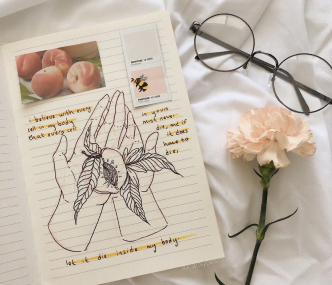 i believe with every
cell in my body
that every cell
in yours
must never
die, and if
it does
have to
die,
let it die inside my body